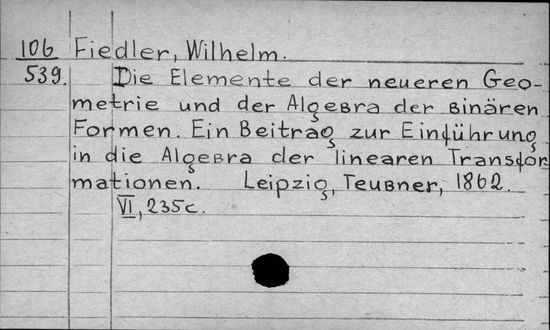 106 Fiedler, Wilhelm.
539. Die Elemente der neueren Geo-
metrie und der Algebra der binären
Formen. Ein Beitrag zur Einführung
in die Algebra der linearen Transfor-
mationen. Leipzig, Teubner, 1862.
VI, 235c.